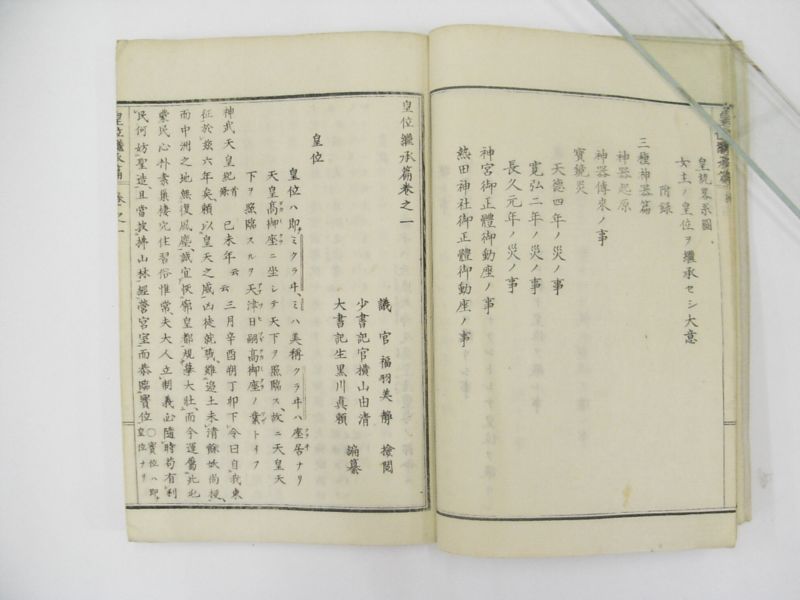 皇統畧系圖
女主ノ皇位ヲ繼承セシ大意
附録
三種神器篇
神器起原
神器傳來ノ事
寶鏡災
天德四年ノ災ノ事
寛弘二年ノ災ノ事
長久元年ノ災ノ事
神宮御正體御動座ノ事
熱田神社御正體御動座ノ事
皇位繼承篇卷之一
議官福羽美靜 檢閲
少書記官横山由清
大書記生黒川真頼 編纂
皇位
皇位ハ即ミクラヰ、ミハ美稱クラヰハ座居ナリ
天皇高御座ニ坐シテ天下ヲ照臨ス、故ニ天皇天
下ヲ照臨スルヲ天津日嗣高御座ノ業トイフ
神武天皇紀 己未年云云三月辛酉朔丁卯下令曰自我東
征於茲六年矣、頼以皇天之威凶徒就戮、雖邊土未清餘妖尚梗、
而中洲之地無復風塵、誠宜恢廓皇都規摹大壯、而今運屬此屯
蒙民心朴素巢棲穴住習俗惟常、夫大人立制義必隨時苟有利
民何妨聖造、且當披拂山林經營宮室而恭臨寶位 ○寶位ハ即皇位ナリ
皇位繼承篇 卷之一